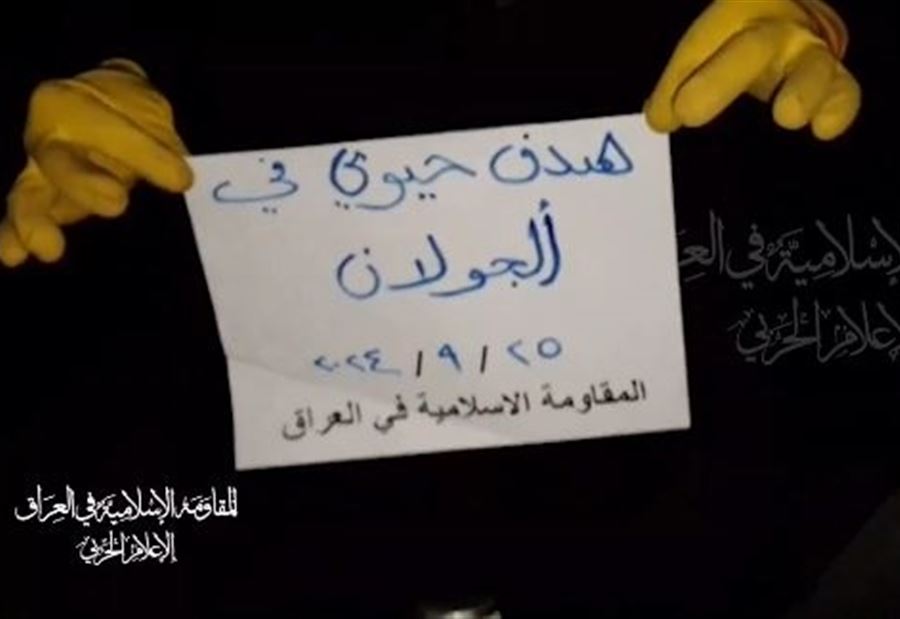 هدف حيوي في
ألجولان
٢٠٢٤/٩/٢٥
المقاومة الاسلامية في العراق
الإسلامية في العر
الإعلام الحربي
المقاومة الإسلامية في العراق
الإعلام الحربي